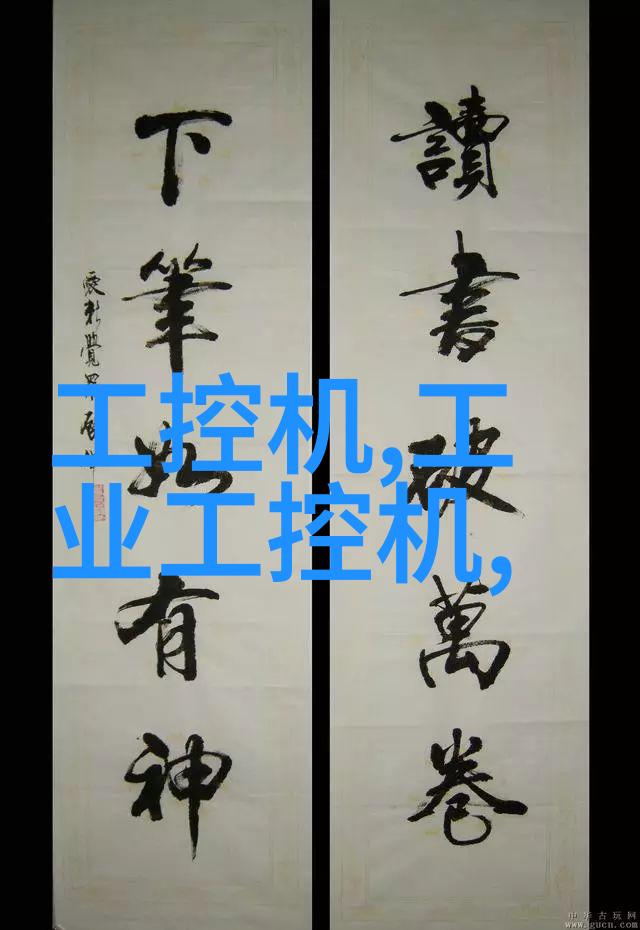 讀書破萬卷
下筆如有神
工控机,工
业工控机,
中华古玩网
www.gucn.com